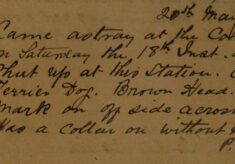 20th Mar
Came astray at the Co
on Saturday the 18th Inst.
Shut up at this Station.
Terrier Dog. Brown Head.
Mark on off side across
Has a collar on without
P.